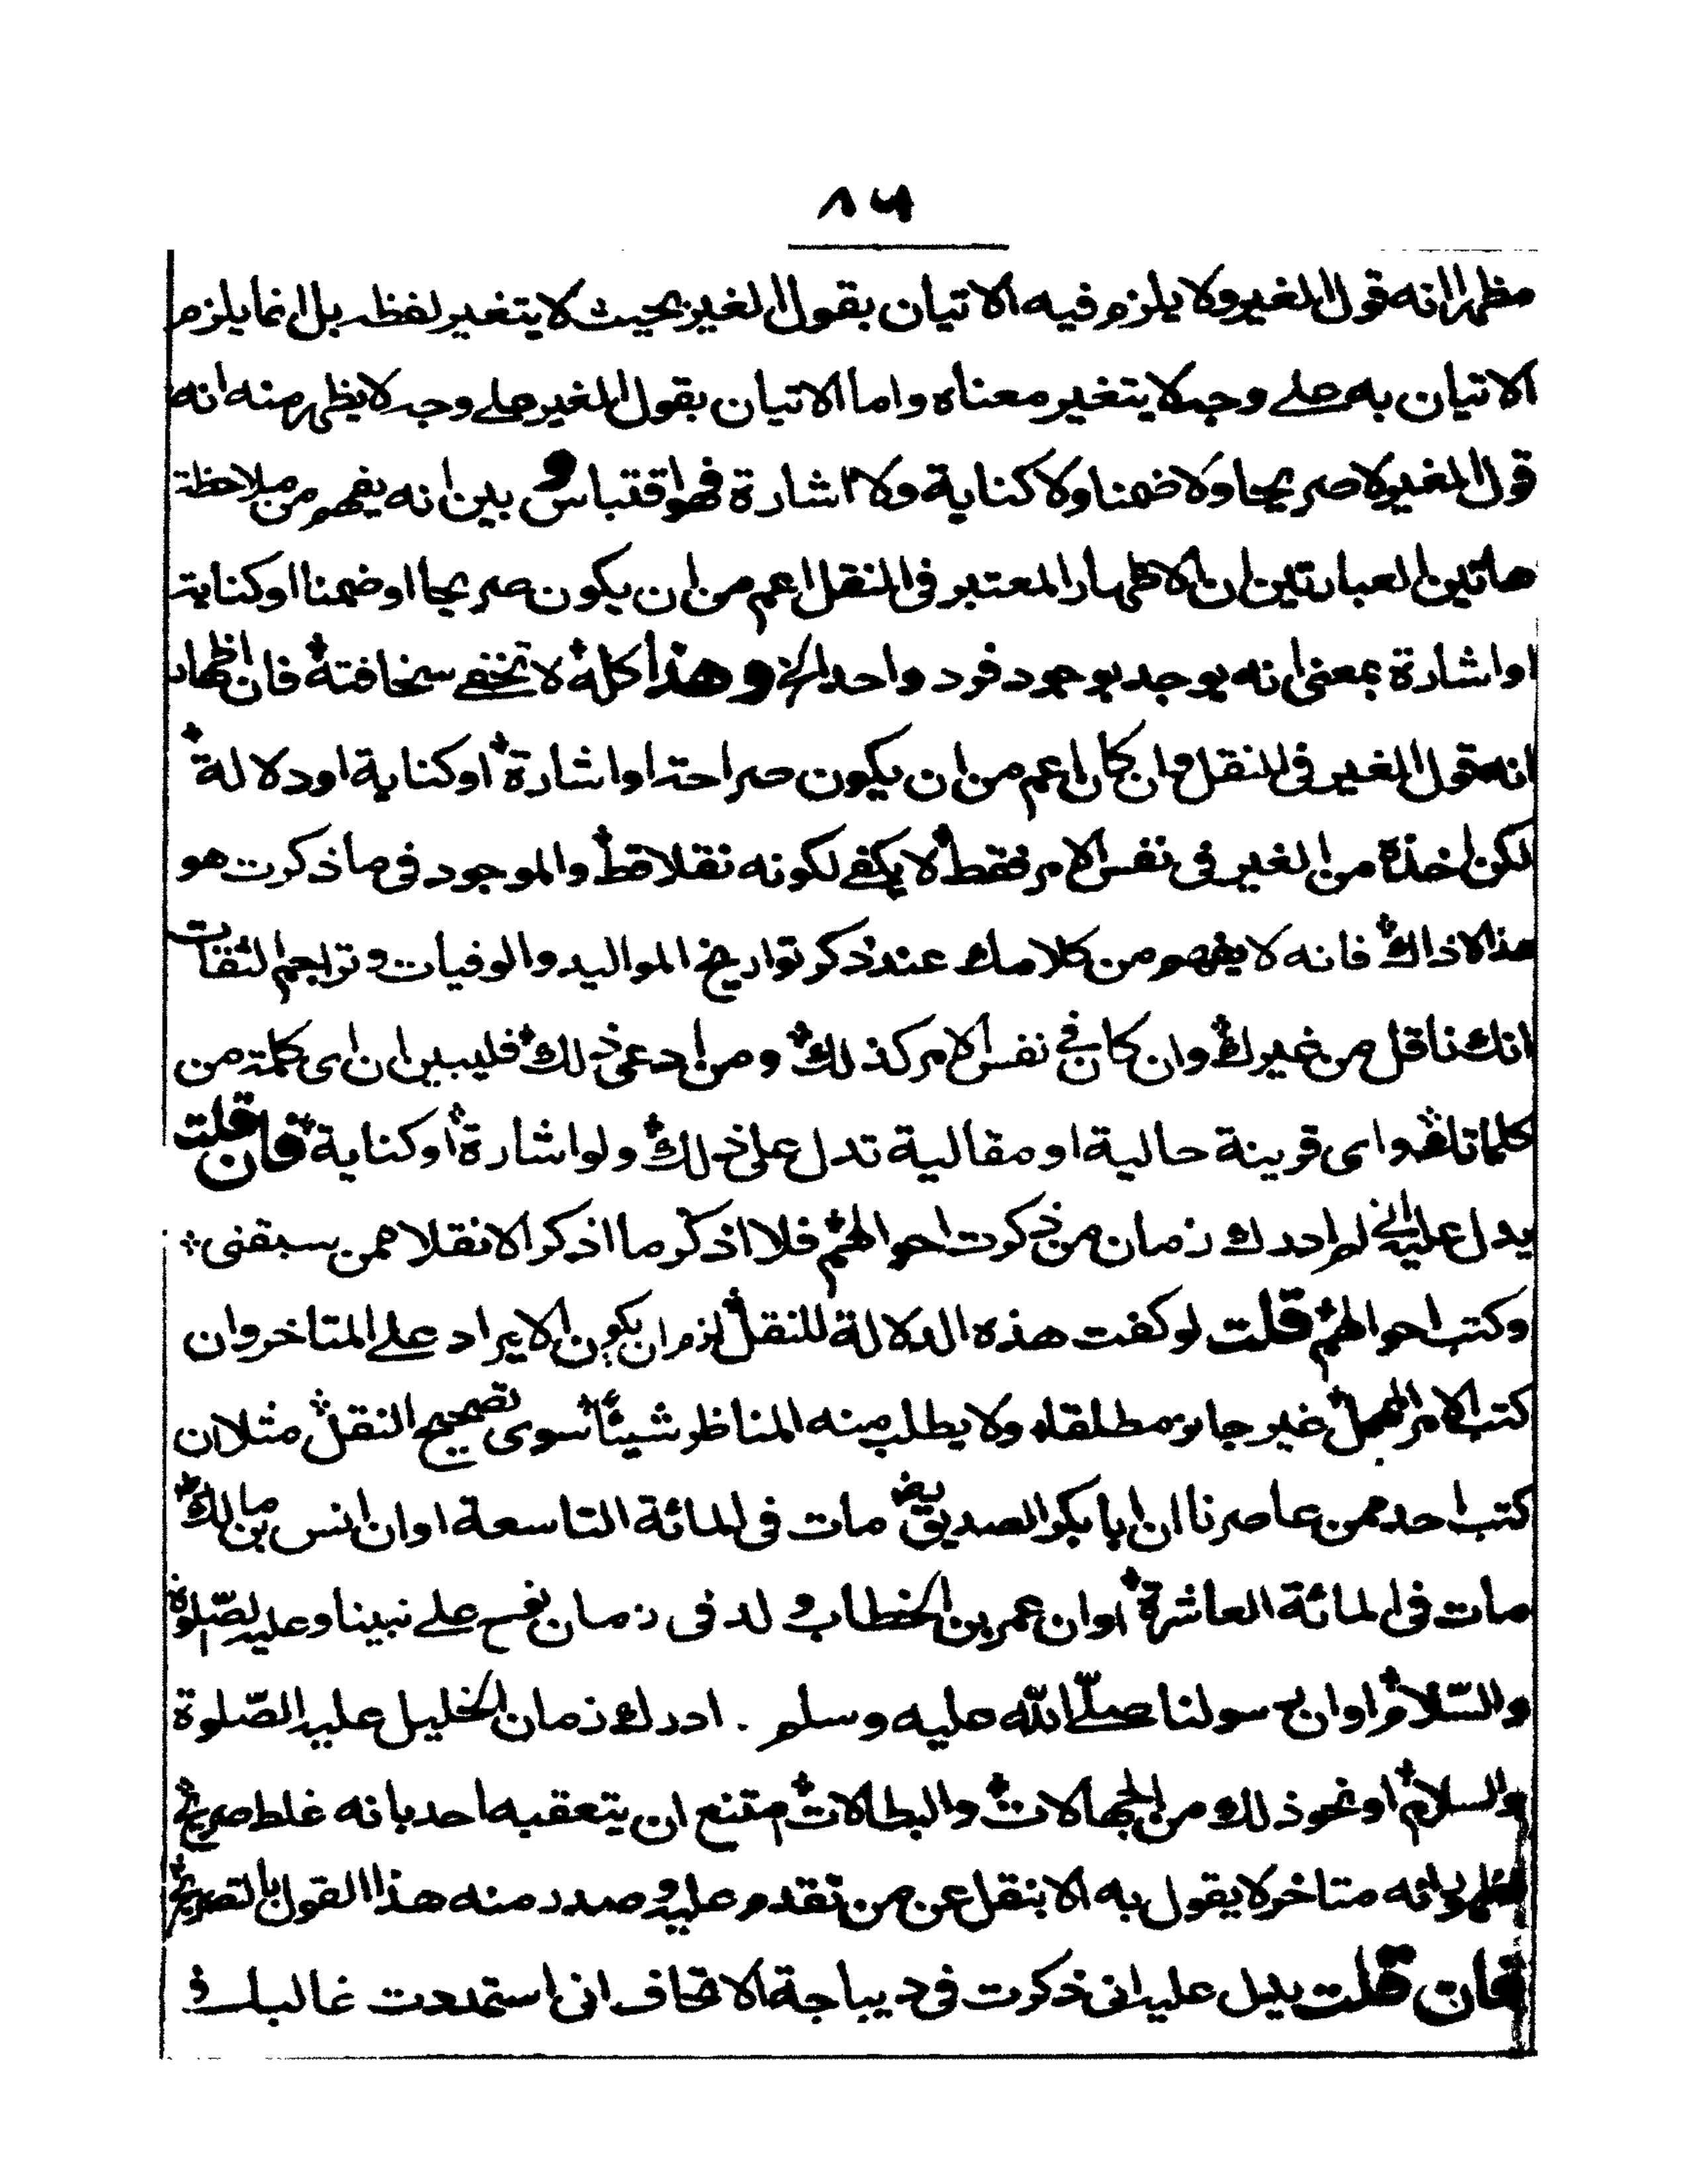 ٨٦
مظهرا انه قول الغير ولا يلزم فيه الاتيان بقول الغير بحيث لا يتغير لفظه بل انما يلزم
الاتيان به على وجه لا يتغير معناه واما الاتيان بقول الغير على وجه لا يظهر منه انه
قول الغير لا صريحا ولا ضمنا ولا كناية ولا اشارة فهو اقتباس وبين انه يفهم من ملاحظة
هاتين العبارتين ان الاظهار المعتبر في النقل اعم من ان يكون صريحا او ضمنا او كناية
او اشارة بمعنى انه يوجد بوجود فرد واحد الخ وهذا كله لا تخفى سخافته فان اظهار
انه قول الغير في النقل وان كان اعم من ان يكون صراحة او اشارة او كناية او دلالة
لكن اخذه من الغير في نفس الامر فقط لا يكفي لكونه نقلا قط والموجود في ما ذكرت هو
هذا لا ذاك فانه لا يفهم من كلامك عند ذكر تواريخ المواليد والوفيات وتراجم الثقات
انك ناقل من غيرك وان كان في نفس الامر كذلك ومن ادعى ذلك فليبين ان اى كلمة من
كلماتك واى قرينة حالية او مقالية تدل على ذلك ولو اشارة او كناية فان قلت
يدل عليه اني لم ادرك زمان من ذكرت احوالهم فلا اذكر ما اذكر الا نقلا ممن سبقني
وكتب احوالهم قلت لو كفت هذه الدلالة للنقل لزم ان يكون الايراد على المتاخر وان
كتب الامر المهمل غير جائز مطلقا ولا يطلب منه المناظر شيئا سوى تصحيح النقل مثلا ان
كتب احد ممن عاصرنا ان ابا بكر الصديق رض مات في المائة التاسعة او ان انس بن مالك
مات في المائة العاشرة او ان عمر بن الخطاب ولد في زمان نوح على نبينا وعليه الصلوة
والسلام او ان رسولنا صلى الله عليه وسلم . ادرك زمان الخليل عليه الصلوة
والسلام او نحو ذلك من الجهالات والبطالات امتنع ان يتعقبه احد بانه غلط صريح
لظهور انه متاخر لا يقول به الا بنقل عن من تقدم عليه وصدر منه هذا القول بالتصريح
فان قلت يدل عليه اني ذكرت في ديباجة الاتحاف اني استمددت غالبا في